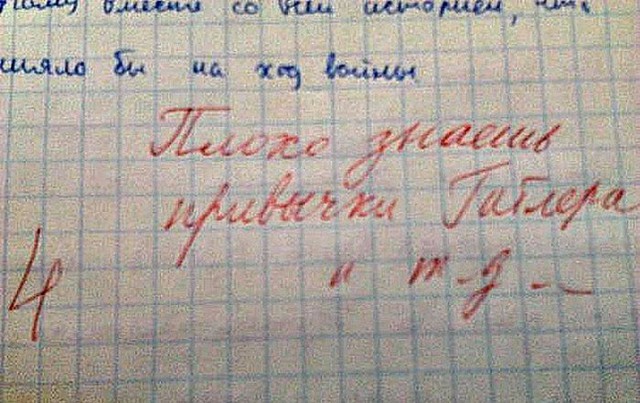 вместе со всей историей,
бы на ход войны
Плохо знаешь
привычки Гитлера
4 и т-д--